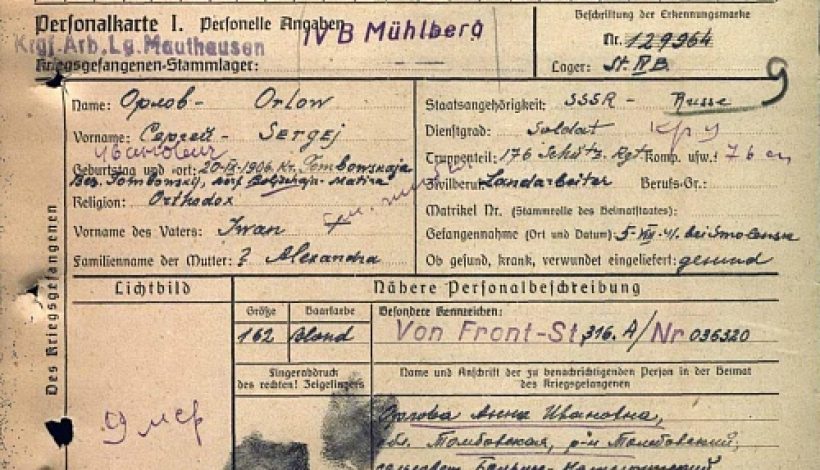 Personalkarte I. Personelle Angaben
Krgf.Arb.Lg.Mauthausen
Kriegsgefangenen-Stammlager:
IV B Mühlberg
Beschriftung der Erkennungsmarke
Nr. 129964
Lager: St. IV B.
Des Kriegsgefangenen
Name: Орлов - Orlow
Vorname: Сергей - Sergej
Geburtstag und -ort: 20-IX-1906. Kr. Tombowskaja
Bez. Tombowskij,
Religion: Orthodox
Vorname des Vaters: Iwan +
Familienname der Mutter: ? Alexandra
Staatsangehörigkeit: SSSR - Russe
Dienstgrad: Soldat
Truppenteil: 176 Schütz. Rgt Komp. usw.:
Zivilberuf: Landarbeiter Berufs-Gr.:
Matrikel Nr. (Stammrolle des Heimatstaates):
Gefangennahme (Ort und Datum): 5-VIII-41. bei Smolensk
Ob gesund, krank, verwundet eingeliefert: gesund
Lichtbild
Nähere Personalbeschreibung
Größe
Haarfarbe
Besondere Kennzeichen:
162
blond
Von Front-St. 316. A/Nr 036320
Fingerabdruck
des rechten! Zeigefingers
Name und Anschrift der zu benachrichtigenden Person in der Heimat
des Kriegsgefangenen
Орлова Анна Ивановна,
обл. Томбовская, р-н Томбовский,